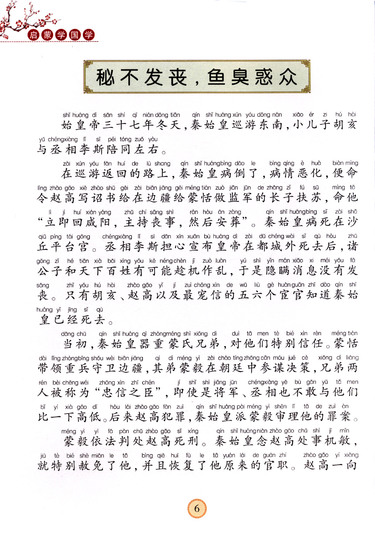 启蒙学国学
秘不发丧，鱼臭惑众
始皇帝三十七年冬天，秦始皇巡游东南，小儿子胡亥
与丞相李斯陪同左右。
在巡游返回的路上，秦始皇病倒了，病情恶化，便命
令赵高写诏书给在边疆给蒙恬做监军的长子扶苏，命他
“立即回咸阳，主持丧事，然后安葬”。秦始皇病死在沙
丘平台宫。丞相李斯担心宣布皇帝在都城外死去后，诸
公子和天下百姓有可能趁机作乱，于是隐瞒消息没有发
丧。只有胡亥、赵高以及最宠信的五六个宦官知道秦始
皇已经死去。
当初，秦始皇器重蒙氏兄弟，对他们特别信任。蒙恬
带领重兵守卫边疆，其弟蒙毅在朝廷中参谋决策，兄弟两
人被称为“忠信之臣”，即使是将军、丞相也不敢与他们
比一下高低。后来赵高犯罪，秦始皇派蒙毅审理他的罪案。
蒙毅依法判处赵高死刑。秦始皇念赵高处事机敏，
就特别赦免了他，并且恢复了他原来的官职。赵高一向
6